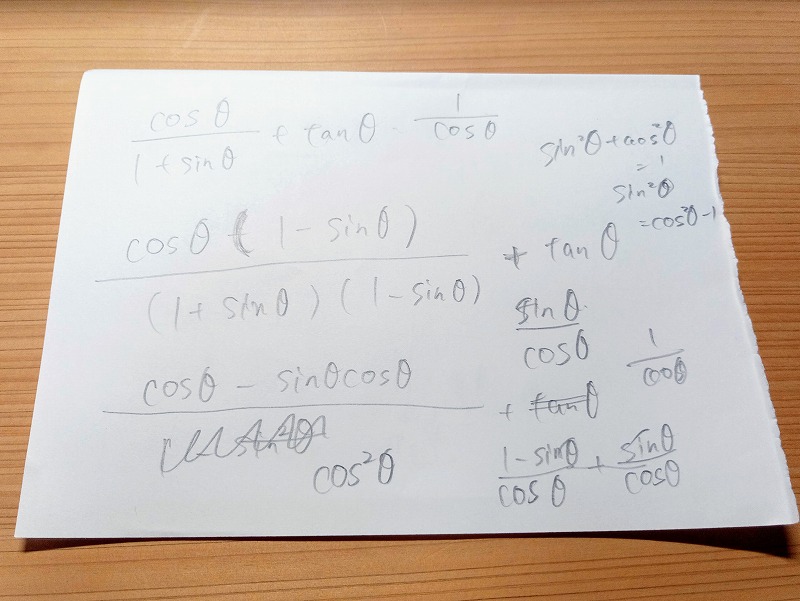 cosθ/(1+sinθ) + tanθ · 1/cosθ
sin²θ+cos²θ
=1
sin²θ
=cos²θ-1
cosθ(1-sinθ)/((1+sinθ)(1-sinθ)) + tanθ
sinθ/cosθ
1/cosθ
(cosθ - sinθcosθ)/cos²θ + tanθ
(1-sinθ)/cosθ + sinθ/cosθ